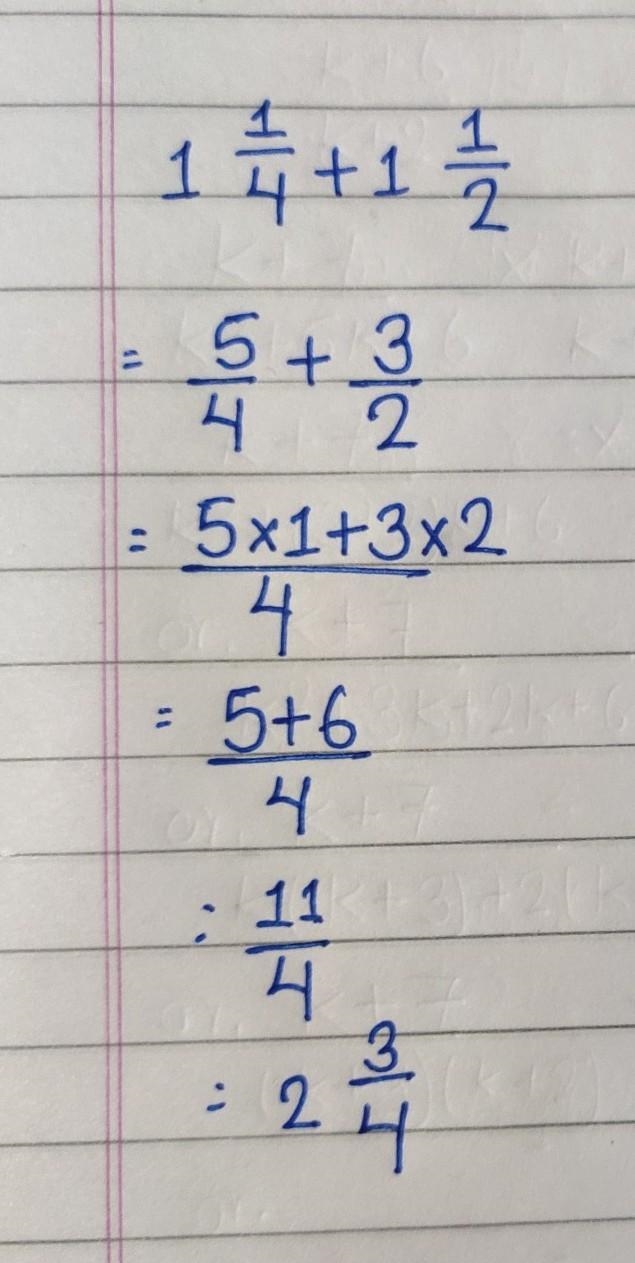 1 1/4 + 1 1/2
= 5/4 + 3/2
= 5×1+3×2/4
= 5+6/4
= 11/4
= 2 3/4